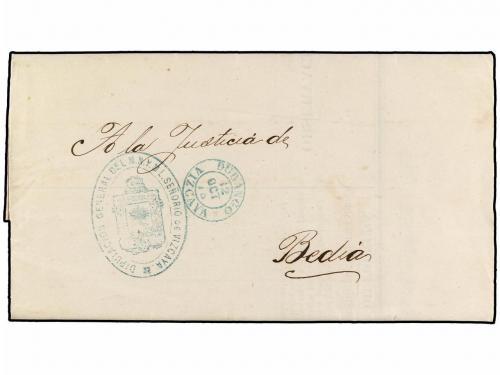 A la Justicia de
DIPUTACION GENERAL DEL M.N. Y M.L. SEÑORIO DE VIZCAYA
DURANGO VIZCAYA
12
OCT
Bedia